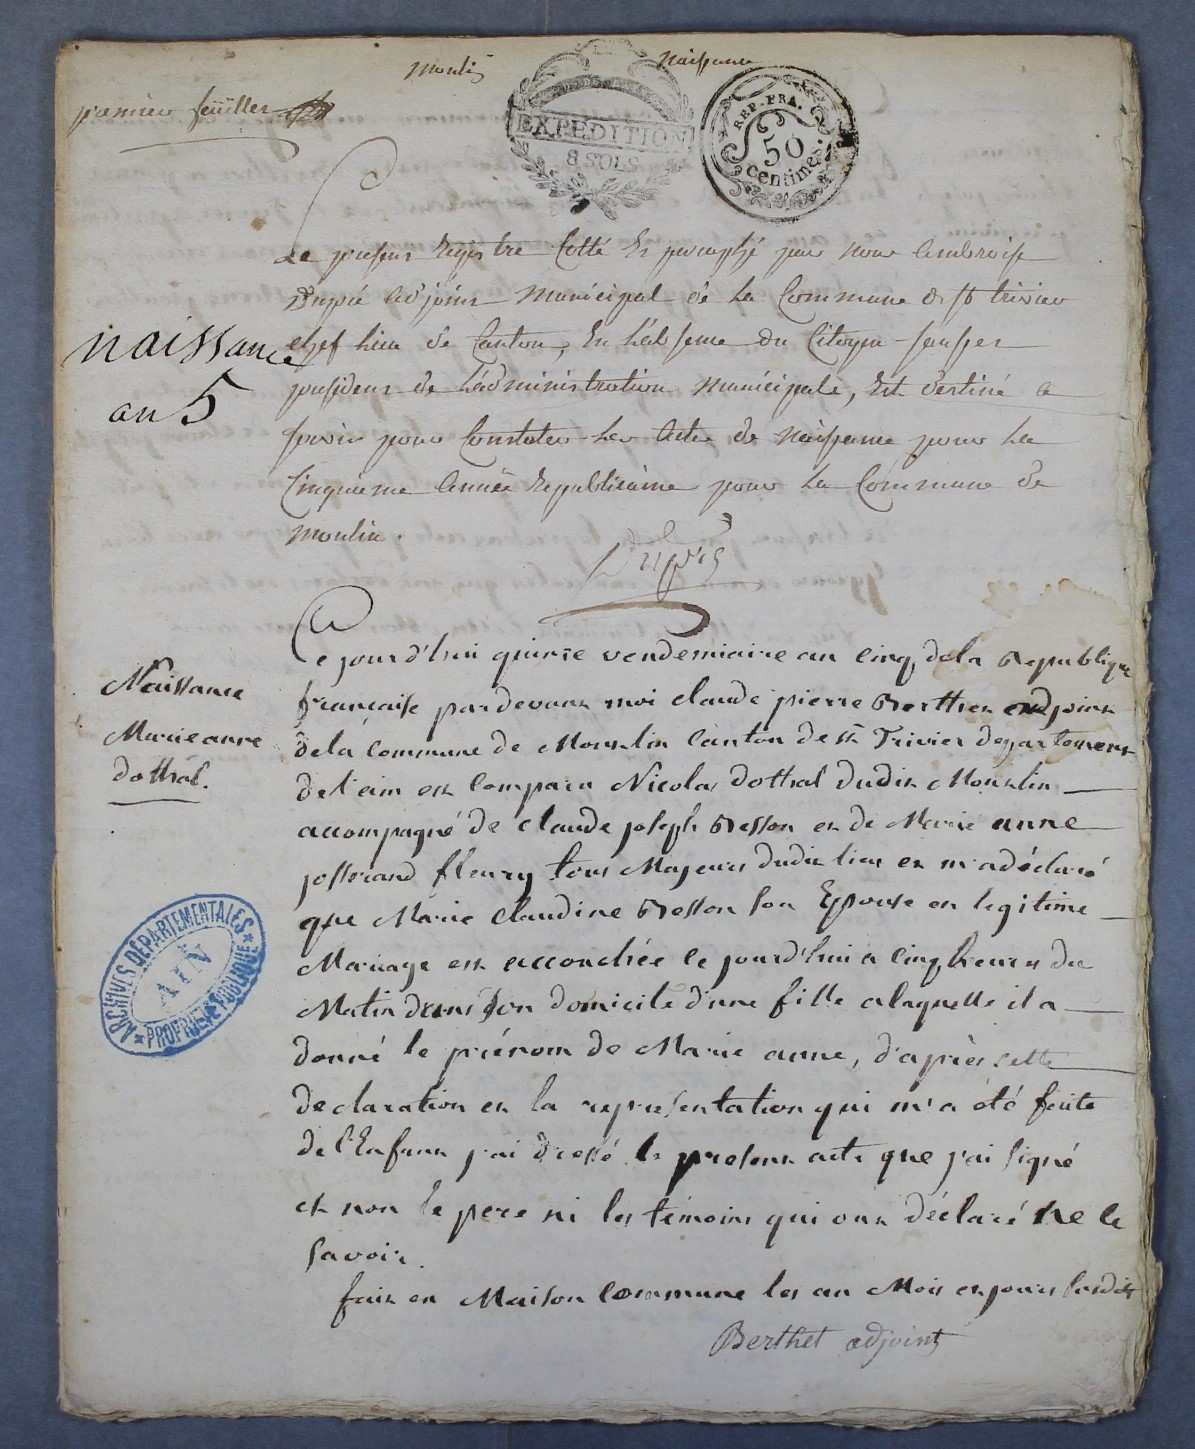 moulin
naissance
premier feuillet
EXPEDITION
8 SOLS
REP. FRA.
50
centimes.
Le present Registre Cotté Et paraphé par nous ambroise
Dupré adjoint municipal de la Commune de st trivier
chef lieu de Canton, En l'absence du Citoyen
president de l'administration municipale, Est destiné a
servir pour Constater les Actes de Naissance pour la
Cinquieme année Republicaine pour la Commune de
moulin.
naissance
an 5
Ce jourd'hui quinze vendemiaire an cinq dela Republique
française pardevant moi claude pierre Berthet adjoint
dela commune de Mouslin Canton de st Trivier departement
de l'ain est Comparu Nicolas dothal dudit Mouslin
accompagné de claude joseph Besson et de Marie anne
josserand fleury tous Majeurs dudit lieu et m'a déclaré
que Marie claudine Besson son Epouse en legitime
Mariage est accouchée ce jourd'hui a cinq heures du
Matin dans son domicile d'une fille a laquelle il a
donné le prénom de Marie anne, d'après cette
declaration et la representation qui m'a été faite
de l'Enfant j'ai dressé le present acte que j'ai signé
et non le pere ni les témoins qui ont déclaré Ne le
savoir.
fait en Maison Commune les an Mois et jours susdits
Berthet adjoint
Naissance
Marie anne
dothal.
ARCHIVES DÉPARTEMENTALES
AIN
PROPRIÉTÉ PUBLIQUE